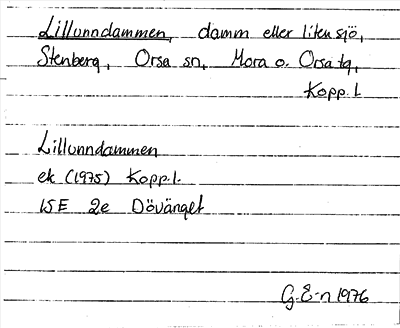 Lillunndammen, damm eller liten sjö,
Stenberg, Orsa sn, Mora o. Orsa tg,
Kopp. l
Lillunndammen
ek (1975) Kopp.l.
15E 2e Dövänget
G.E-n 1976